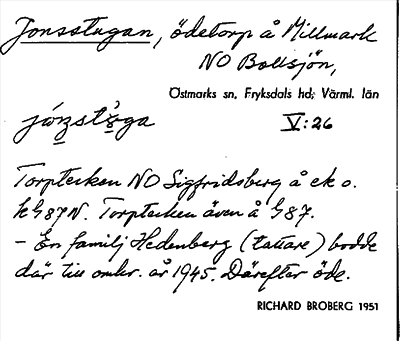 Jonsstugan, ödetorp å Millmark
NO Bollsjön,
Östmarks sn, Fryksdals hd, Värml. län
V:26
Torptecken NO Sigfridsberg å ek o.
kG87N. Torptecken även å G87.
- En familj Hedenberg (tattare) bodde
där till omkr. år 1945. Därefter öde.
RICHARD BROBERG 1951